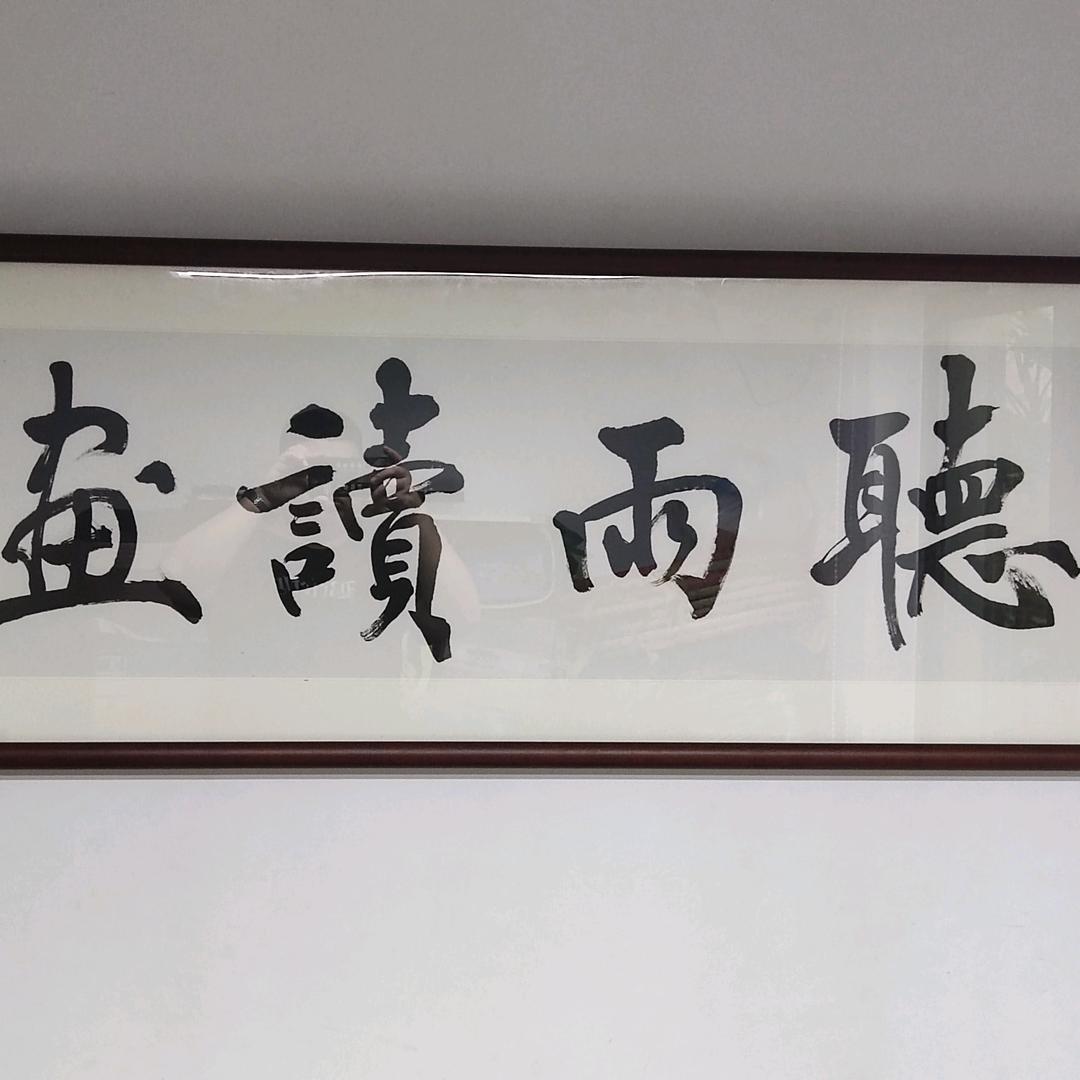 聽雨讀畫